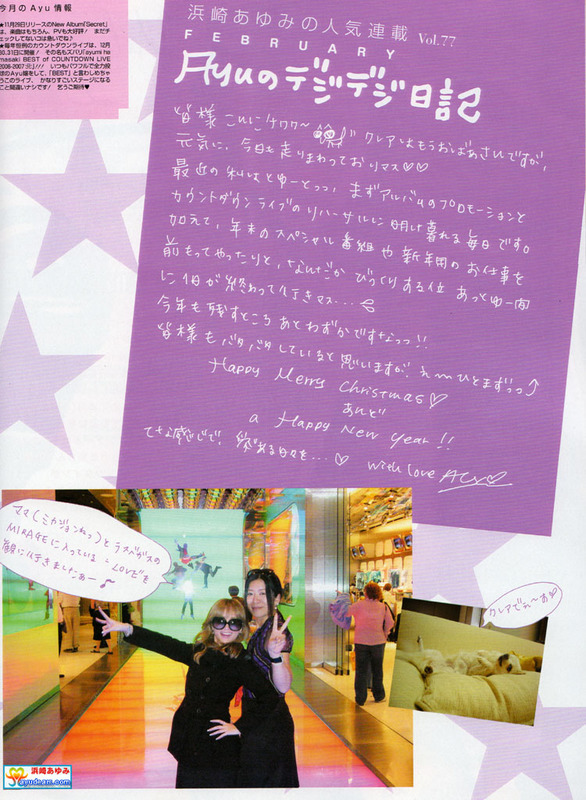 今月のAyu情報
★11月29日リリースのNew Album『Secret』
は、楽曲はもちろん、PVも大好評! まだチ
ェックしてないコは急いでね♪
★毎年恒例のカウントダウンライブは、12月
30,31日に開催! その名もズバリ『ayumi ha
masaki BEST of COUNTDOWN LIVE
2006-2007』!!! いつもパワフルで全力投
球のAyu嬢をして、「BEST」と言わしめちゃ
うこのライブ、かなりすごいステージになる
こと間違いナシです! 乞うご期待♥
浜崎あゆみの人気連載 Vol.77
FEBRUARY
Ayuのデジデジ日記
皆様こんにチワワ〜
クレアはもうおばあさんですが、
元気に、今日も走りまわっておりマス♡♡
最近の私はとゆーとっっ、まずアルバムのプロモーションと
カウントダウンライブのリハーサルに明け暮れる毎日です。
加えて、年末のスペシャル番組や新年用のお仕事を
前もってやったりと、なんだかびっくりする位あっとゆー間
に1日が終わって行きマス…
今年も残すところあとわずかですなっっ!!
皆様もバタバタしていると思いますが、ひとまずっっ⤴
Happy Merry Christmas♡
あんど
a Happy New Year!!
てな感じで、愛ある日々を…♡
with love Ayu♡
ママ(ミカジョンねっっ)とラスベガスの
MIRAGEに入っている、LOVEを
観に行きましたあー♪
クレアでれ〜ね
浜崎あゆみ
ayudream.com